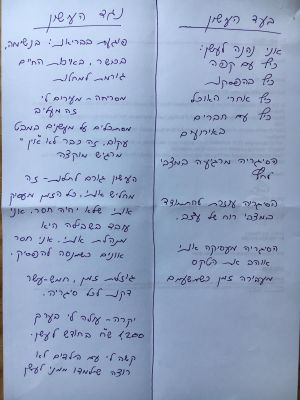 בעד העישון
אני נהנה לעשן:
כיף עם קפה
כיף בהפסקות
כיף אחרי האוכל
כיף עם חברים
באירועים
הסיגריה מרגיעה במצבי
לחץ
הסיגריה עוזרת להתמודד
במצבי רוח של עצב.
הסיגריה מעסיקה אותי
אוהב את הטקס
מעבירה זמן כשמשעמם
נגד העישון
פוגעת בבריאות: בנשימה,
בכושר, באיכות החיים
גורמת למחלות
מסריחה - מעירים לי
זה מעליב
מסתכלים על מעשנים במבט
עקום, זה כבר לא "אין"
מרגיש מוקצה
העישון גורם לתלות - זה
מחליש אותי, כל הזמן מעסיק
אותי שלא יהיה חסר. אני
עובד בשבילה היא
מנהלת אותי. אני חסר
אונים כשמנסה להפסיק.
גוזלת זמן, חמש-עשר
דקות לכל סיגריה.
יקרה - עולה לי בערך
1,200 ש"ח בחודש לעשן.
קשה לי עם הילדים לא
רוצה שילמדו ממני לעשן